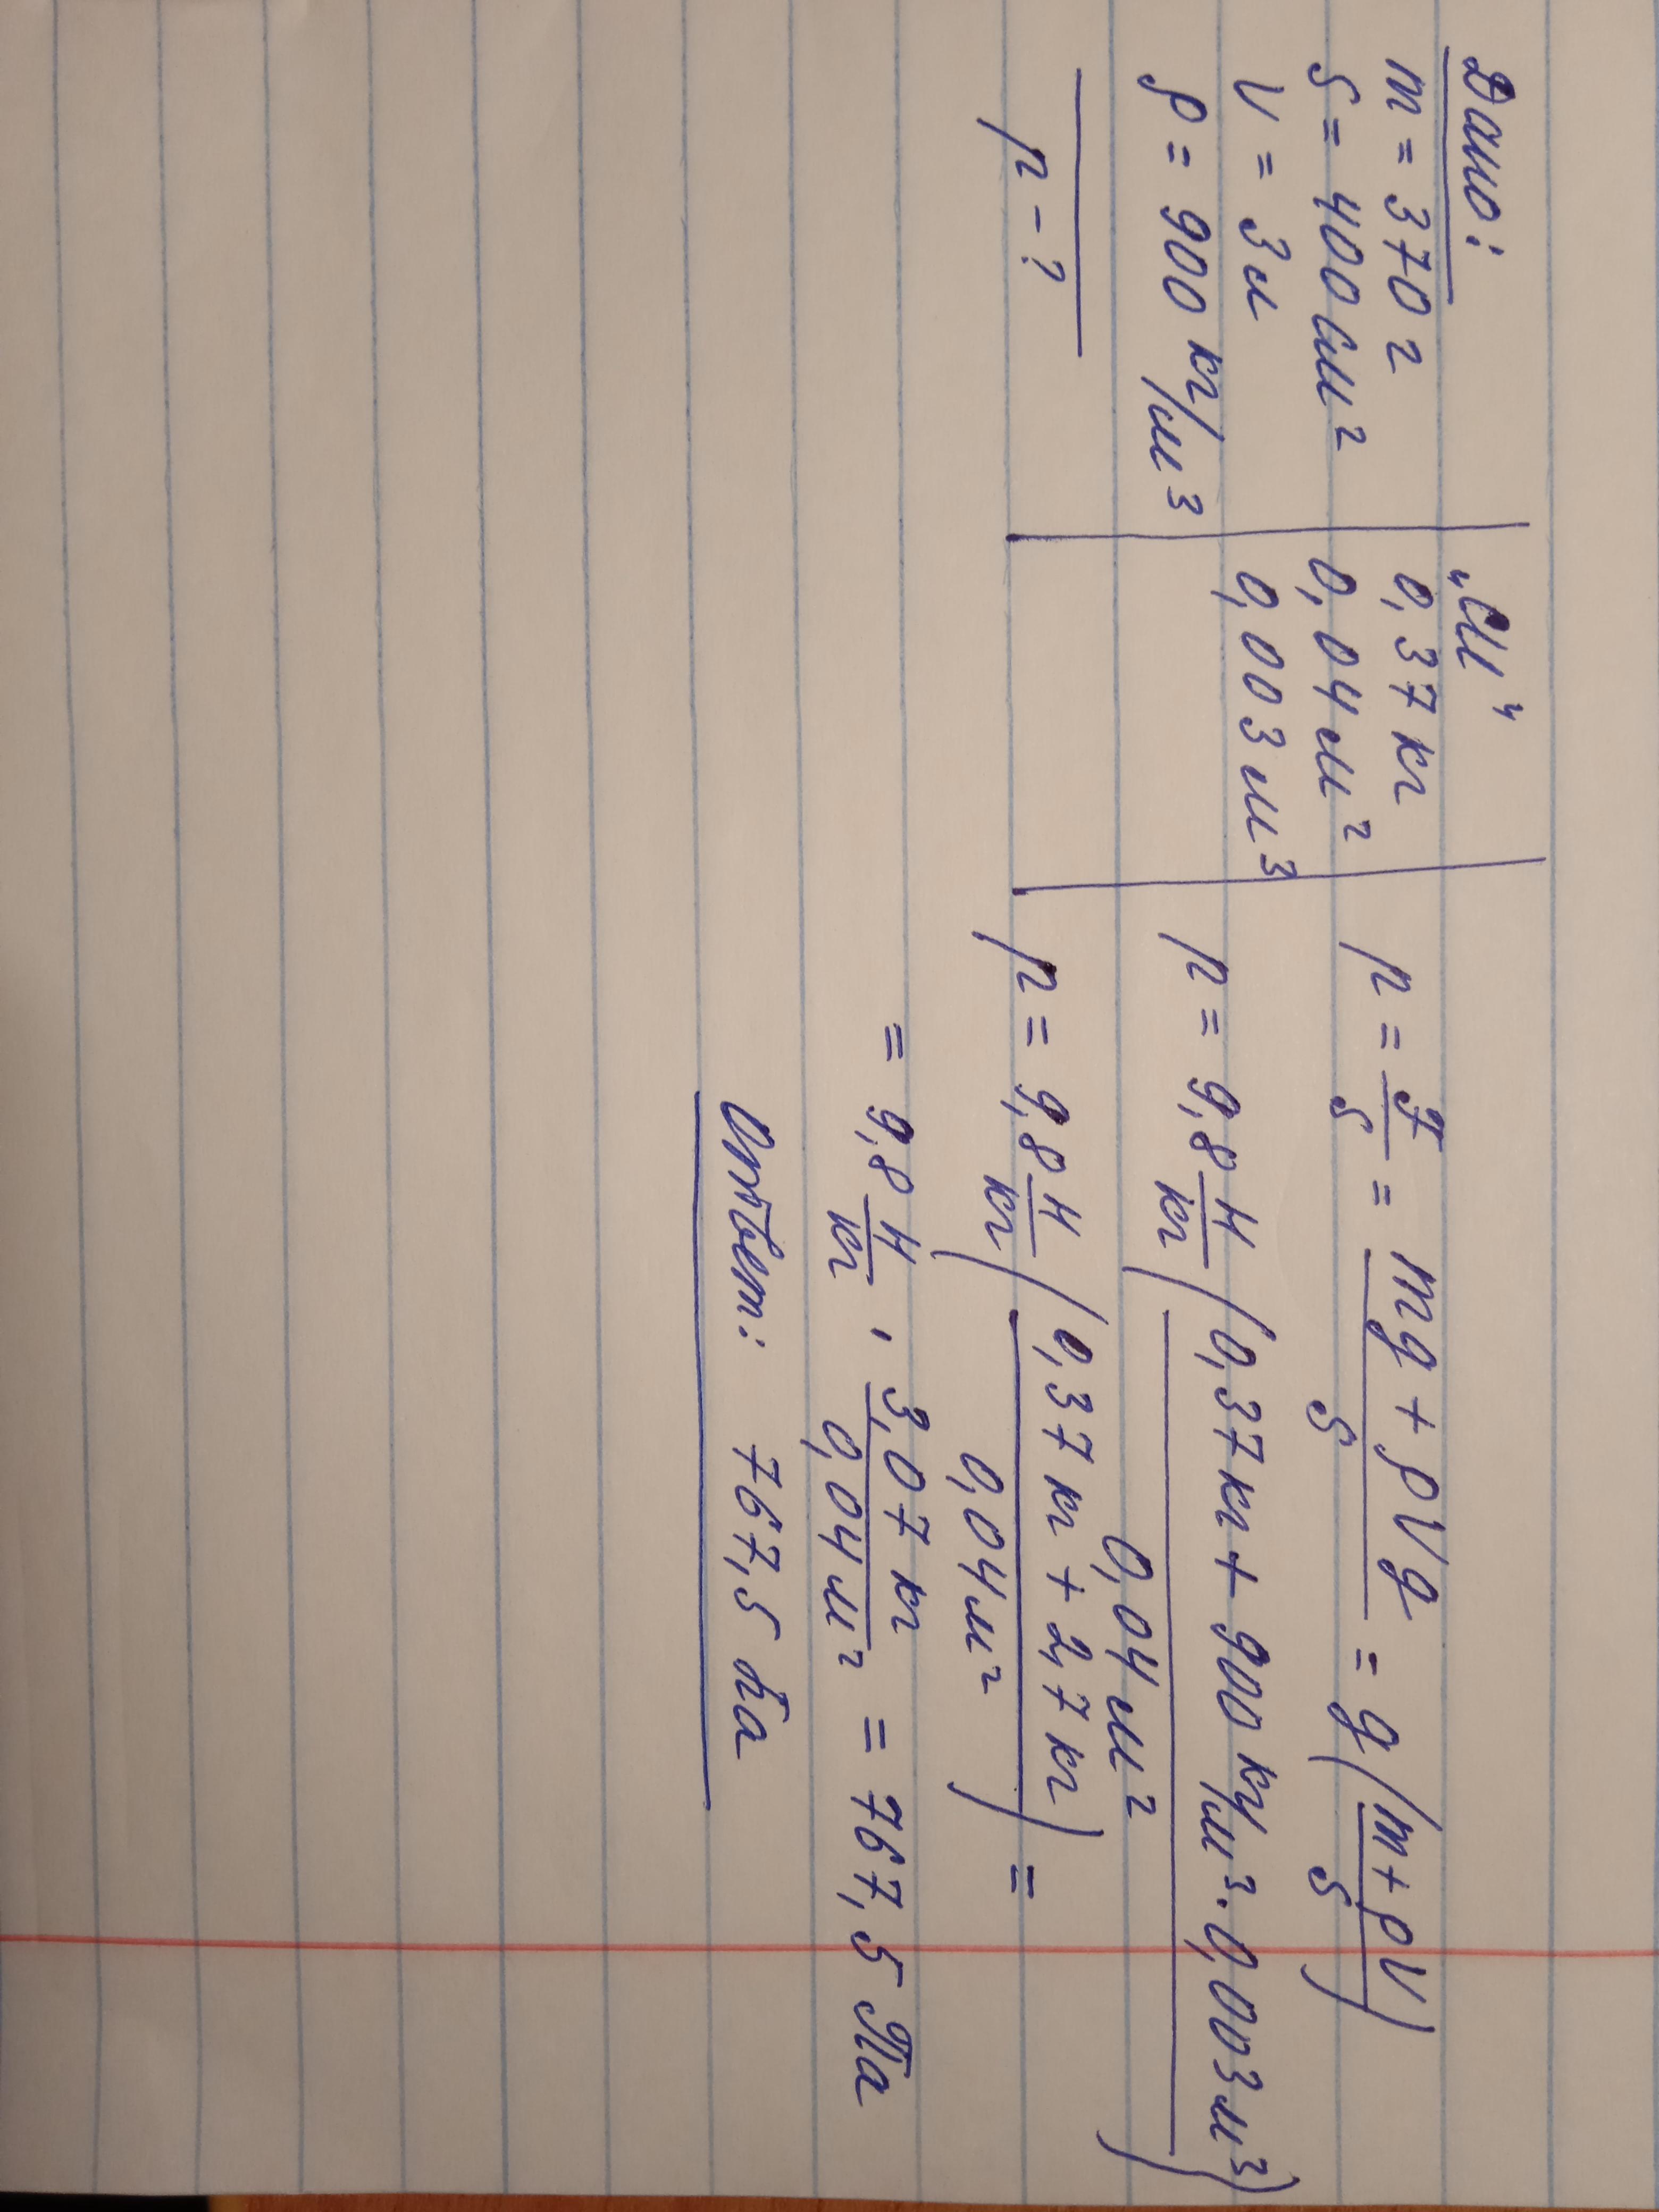 Дано:
m = 370 г
S = 400 см²
V = 3 л
ρ = 900 кг/м³
p - ?
"СИ"
0,37 кг
0,04 м²
0,003 м³
p = F/S = (mg + ρVg)/S = g((m + ρV)/S)
p = 9,8 Н/кг ((0,37 кг + 900 кг/м³ · 0,003 м³)/0,04 м²)
p = 9,8 Н/кг ((0,37 кг + 2,7 кг)/0,04 м²) =
= 9,8 Н/кг · 3,07 кг/0,04 м² = 767,5 Па
Ответ: 767,5 Па